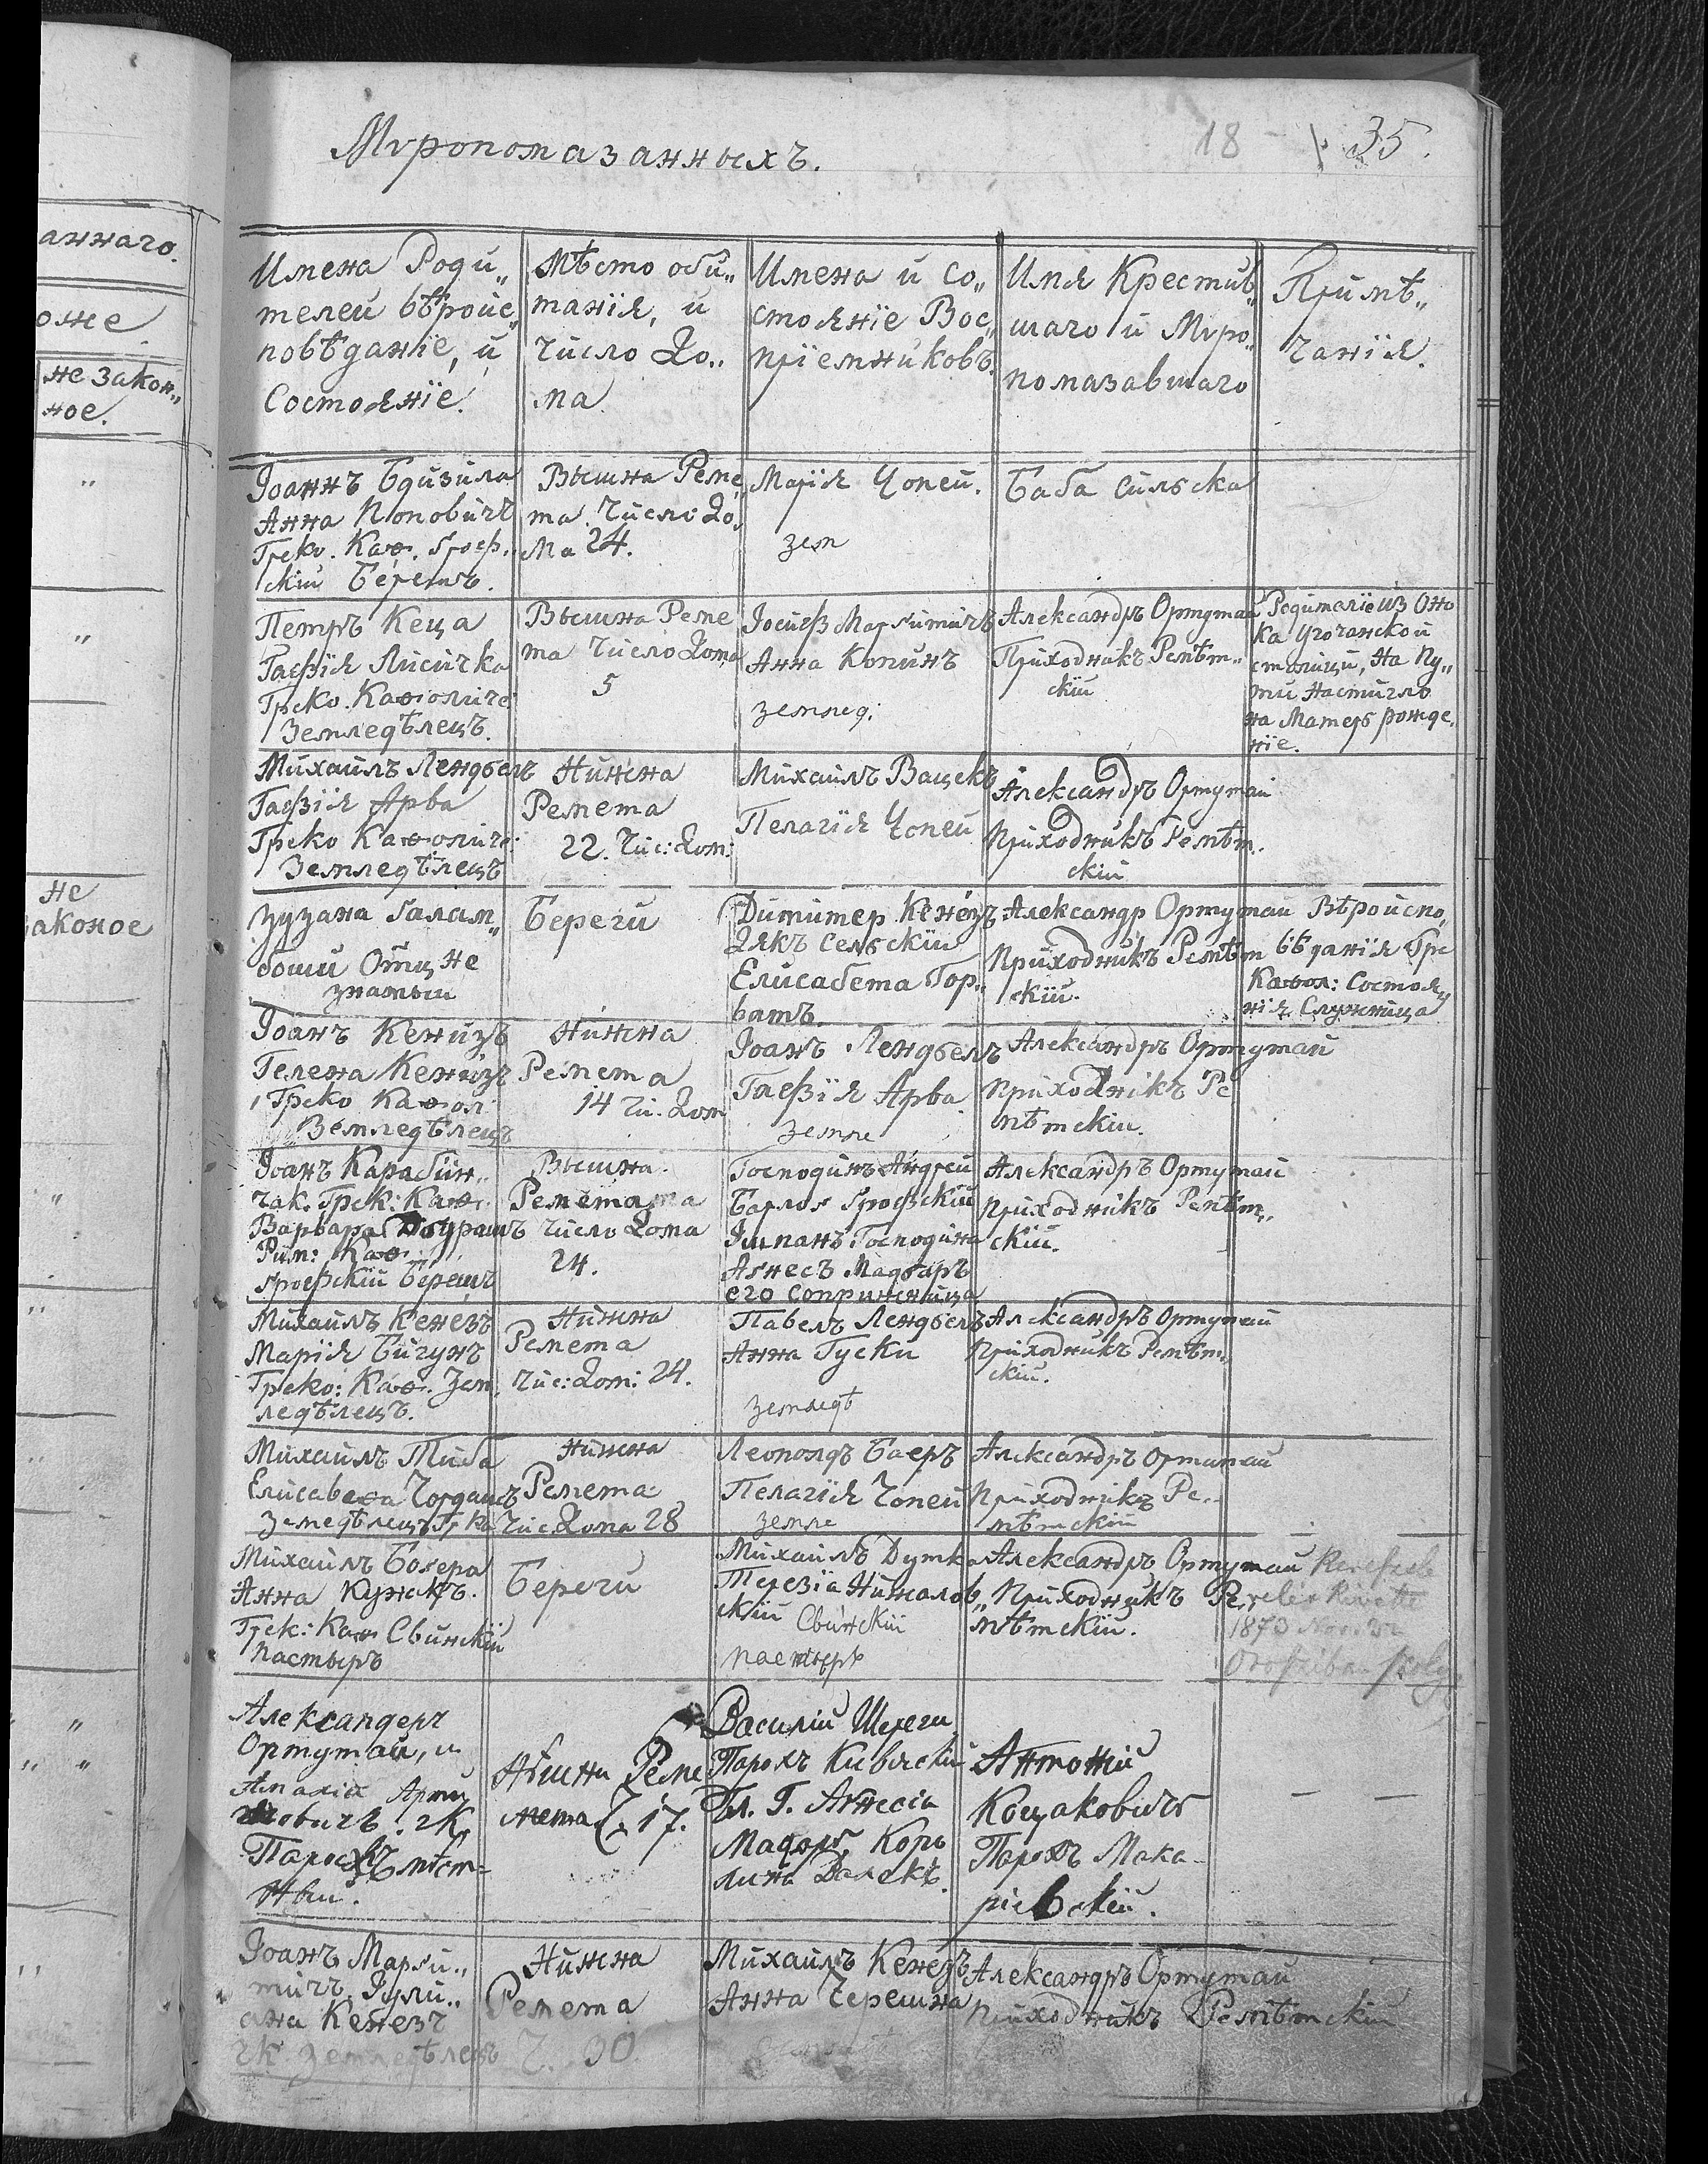 Мѵропомазанныхъ.
18
35.
аннаго.
оже
не закон„
ное.
не
аконое
Имена Роди„
телей вѣроис„
повѣданіе, и
Состояніе.
Мѣсто оби„
танія, и
Число До„
ма.
Имена и Со„
стояніе Вос„
пріемниковъ.
Имя Крестив„
шаго и Мѵро„
помазавшаго
Примѣ„
чанія.
Іоаннъ
Анна Поповичъ
Греко. Каѳ. ґроф„
скій Берешъ.
Вышна Реме„
та. Число До„
ма 24.
Марія Чопей.
зем
Баба сильска
Петръ Кеца
Гафія Лисичка
Греко. Каѳоличе:
Земледѣлецъ.
Вышна Реме
та Число Дома
5
Іосифъ Марґитичъ
Анна Копинъ
землед:
Александръ Ортутай
Приходникъ Ремѣт„
скій
Родителіе из Оно
ка Угочанской
столици, На Пу„
ти настигло
на Матерь рожде„
ніе.
Михаилъ Лендьелъ
Гафія Арва
Греко Каѳоличе:
Земледѣлецъ
Нижна
Ремета
22. Чис: Дом:
Михаилъ Ващекъ
Пелагія Чопей
Александръ Ортутай
Приходникъ Ремѣт„
скій
Зузана Галам„
боши Отц Не
знатный
Береги
Димитер Кенезъ
Дякъ сельскій
Елисабета Гор„
ватъ.
Александр Ортутай
Приходникъ Ремѣт
скій.
Вѣроиспо„
вѣданія Гре
Каѳол: Состоя„
нія Служница
Іоанъ Кенизъ
Гелена Кенизъ
Греко Каѳол:
Земледѣлецъ
Нижна
Ремета
14 Чи. Дом
Іоанъ Лендьелъ
Гафія Арва
земле
Александръ Ортутай
Приходникъ Ре
мѣтскій.
Іоанъ Карабин„
чак. Грек: Каѳ.
Варвара
Рим: Каѳ.
ґрофскій Берешъ
Вышна
Ремета
Число Дома
24.
Господинъ Андрей
Барлоґ ґрофскій
Ишпанъ Господина
Аґнесъ Мадяръ
его сопружница
Александръ Ортутай
Приходникъ Ремѣт„
скій.
Михаилъ Кенезъ
Марія Бигунъ
Греко: Каѳ. Зем„
ледѣлецъ.
Нижна
Ремета
Чис: Дом: 24.
Павелъ Лендьелъ
Анна Гуски
земледѣ
Александръ Ортутай
Приходникъ Ремѣт„
скій.
Михаилъ Тиба
Елисавеѳа Чорданъ
Земедѣлецъ Гр Ка
Нижна
Ремета
Чис Дома 28
Леополдъ Баеръ
Пелагія Чопей
земле
Александръ Ортутай
Приходникъ Ре„
мѣтскій
Михаилъ
Анна
Грек: Каѳ Свинскій
Пастыръ
Береги
Михаилъ Дутка
Терезіа Нижалов„
скій Свинскій
пастырь
Александръ Ортутай
Приходникъ Ре„
мѣтскій.
1873 Nov.
Александеръ
Ортутай, и
Амалія
гк.
Парохъ мѣст=
ный.
Реме
мета Ч. 17.
Василій Шерегi
Парохъ
Бл. Г. Аґнесіа
Мадяръ,
Антоній
Коцаковичъ
Парохъ Мака„
ріевскій.
Іоанъ Марґи„
тичъ. Юли„
ана Кенезъ
гк. земледѣлецъ
Нижна
Ремета
Ч. 30
Михаилъ Кенезъ
Анна Черешна
Александръ Ортутай
Приходникъ Ремѣтскій